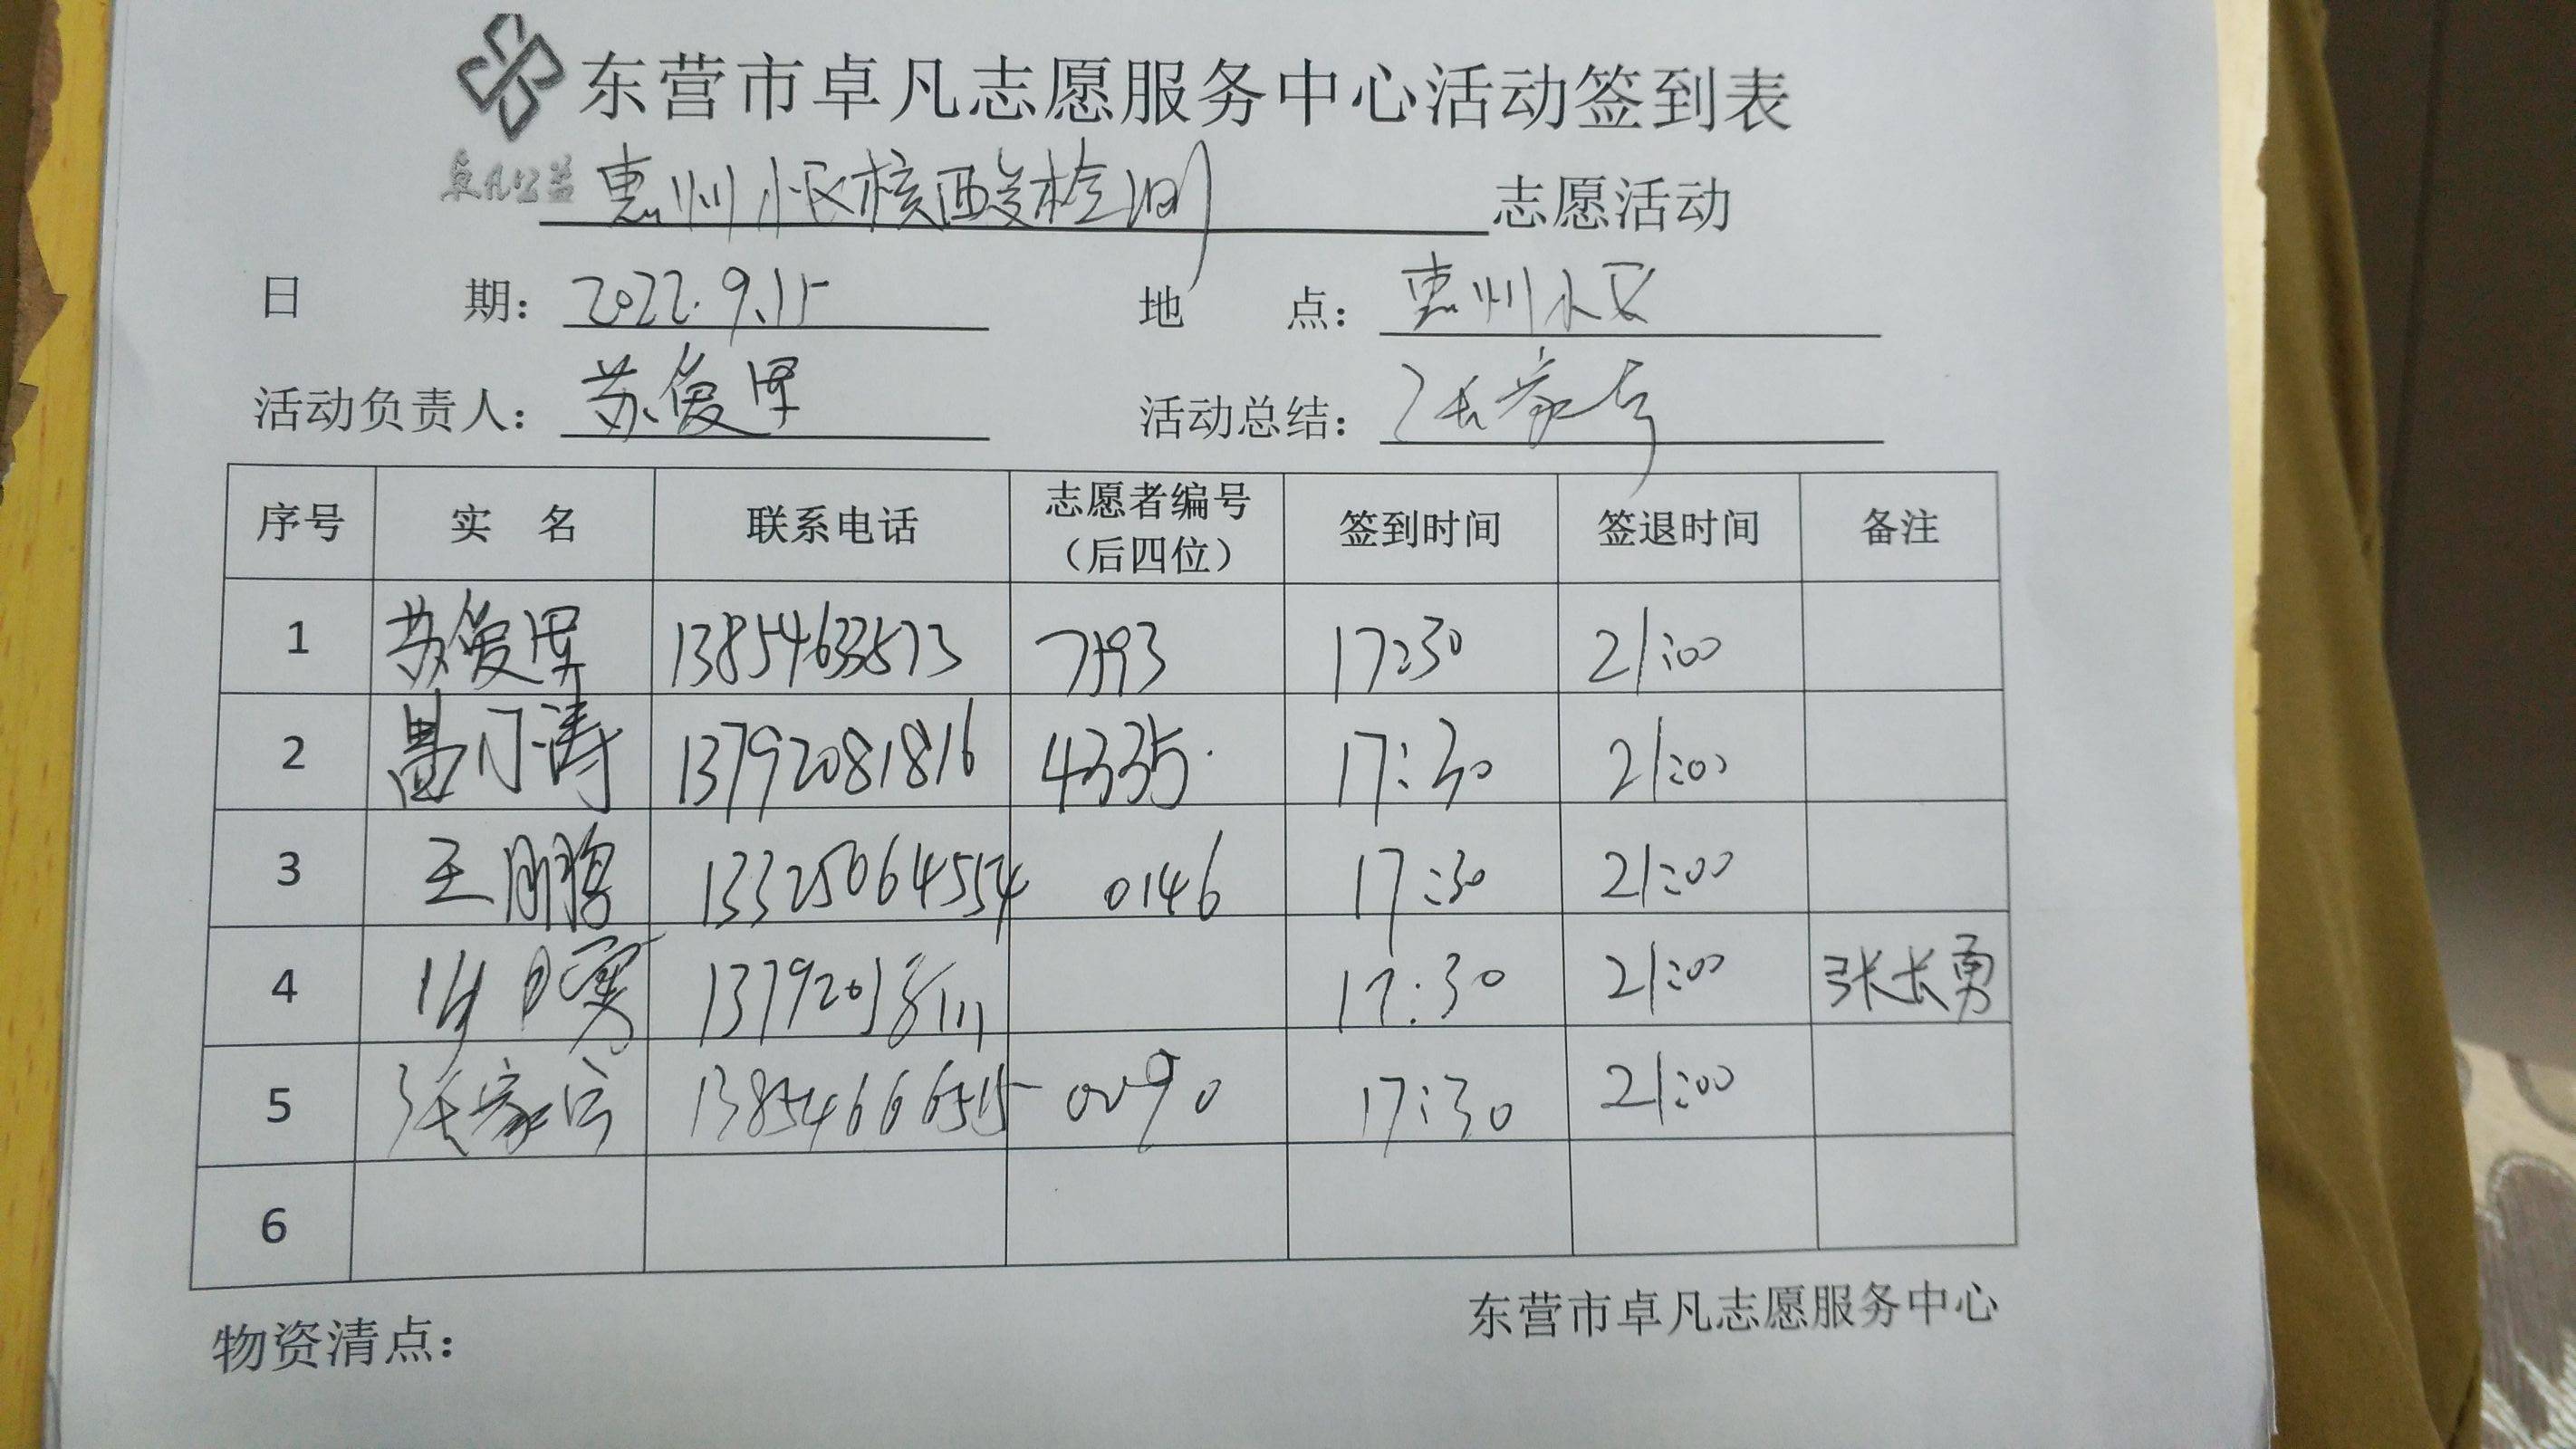 东营市卓凡志愿服务中心活动签到表
卓凡公益
惠州小区核酸检测 志愿活动
日 期: 2022.9.15 地 点: 惠州小区
活动负责人: 苏俊军 活动总结:
序号 实 名 联系电话 志愿者编号(后四位) 签到时间 签退时间 备注
1 苏俊军 13854633573 7593 17:30 21:00
2 涛 13792081816 4335 17:30 21:00
3 王鹏 13325064554 0146 17:30 21:00
4 13792018111 17:30 21:00 张长勇
5 张家 13854666515 0090 17:30 21:00
6
物资清点:
东营市卓凡志愿服务中心